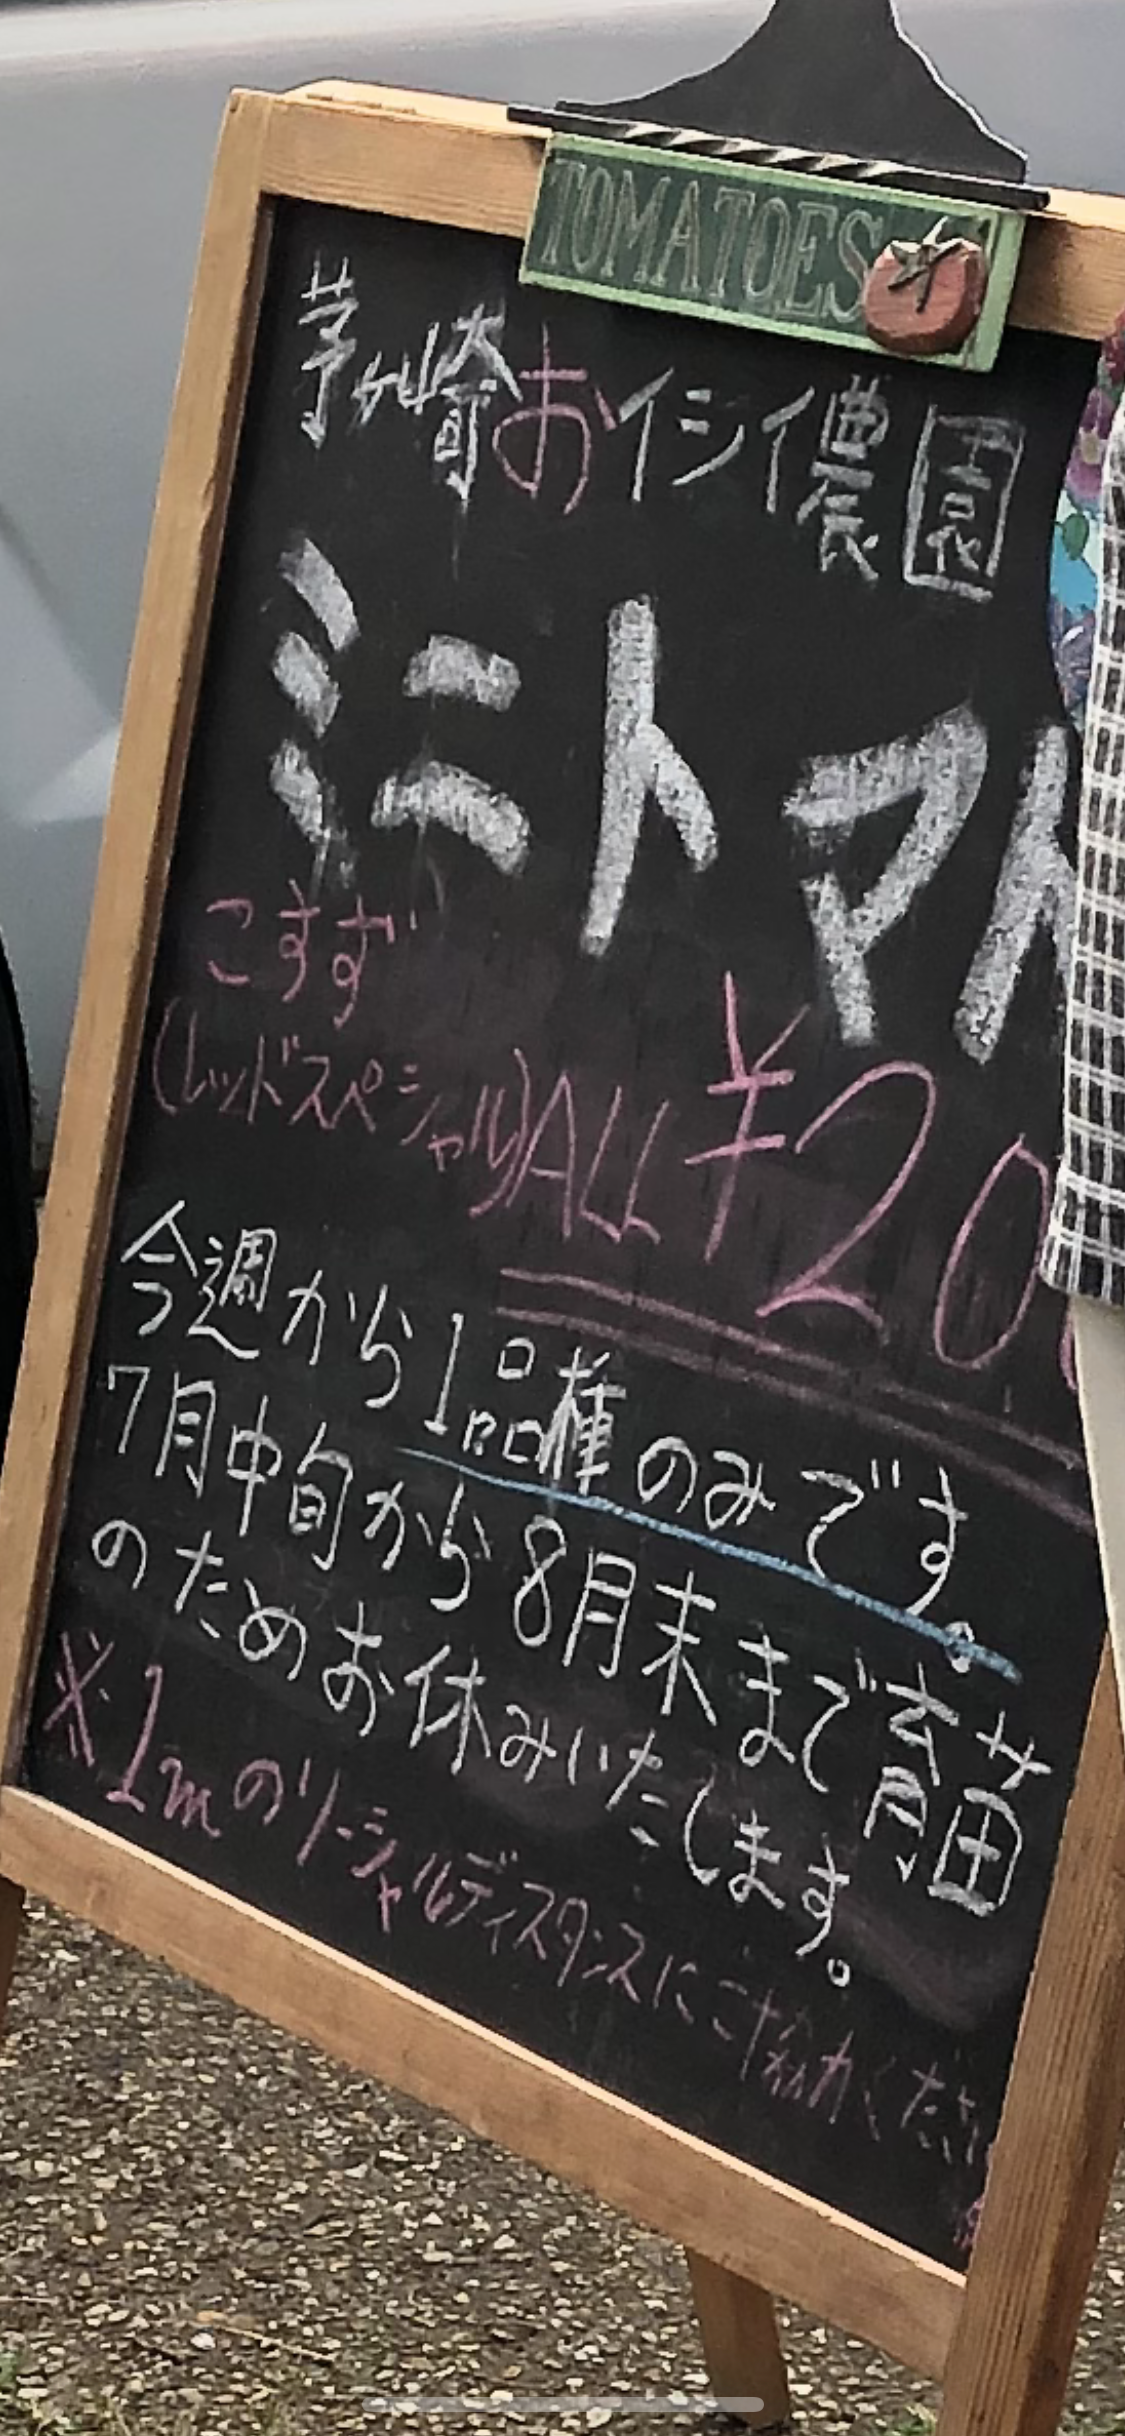 TOMATOES
茅ヶ崎おイシイ農園
ミニトマト
こすず
(レッドスペシャル)ALL ¥20
今週から1品種のみです。
7月中旬から8月末まで育苗
のためお休みいたします。
※1mのソーシャルディスタンスにご協力くださ